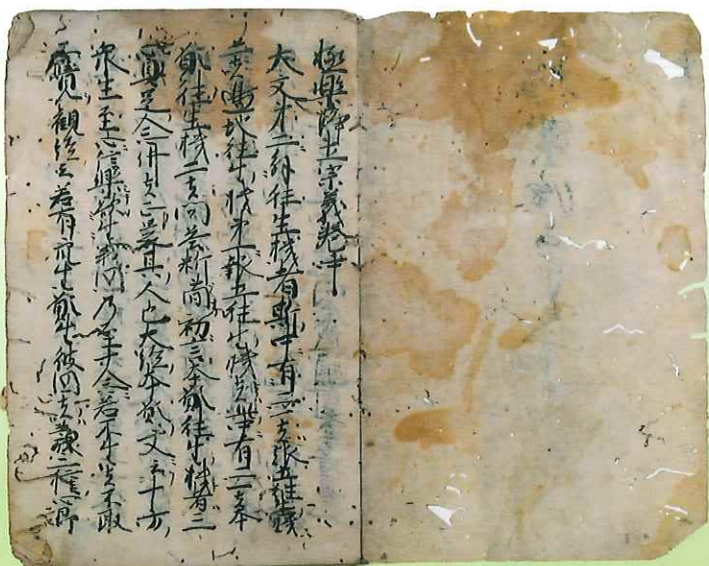 極樂淨土宗義卷中
大文第二弁往生機者斯中有二一者報土往生機
二者邊地往生機第一報土往生機者此中有二一者本
願往生機二者問答料簡初言本願往生機者三
心具足念仏者之是其人也大經本願文云十方
衆生至心信樂欲生我国乃至十念若不生者不取
正覺觀経云若有衆生願生彼国者發三種心即